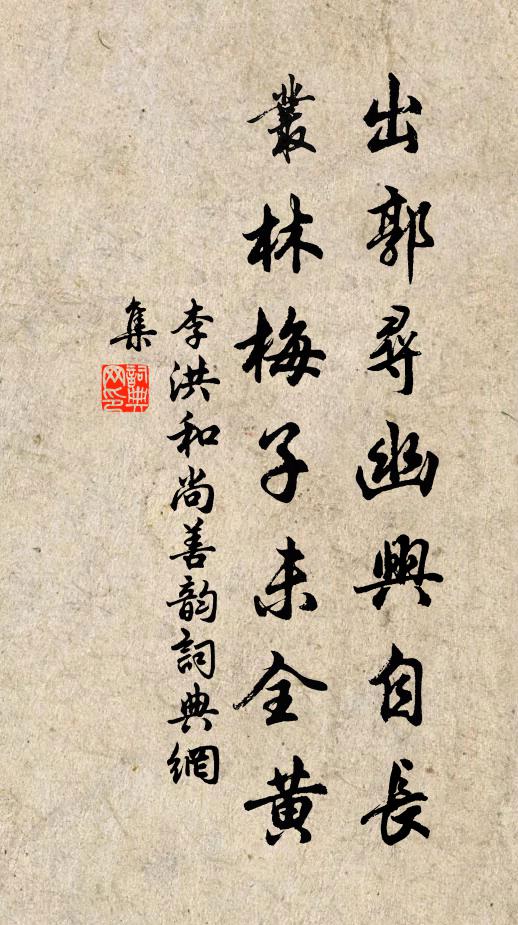 出郭尋幽興自長
叢林梅子未全黄
李洪和尚善韵詞典網
集
詞典
网印